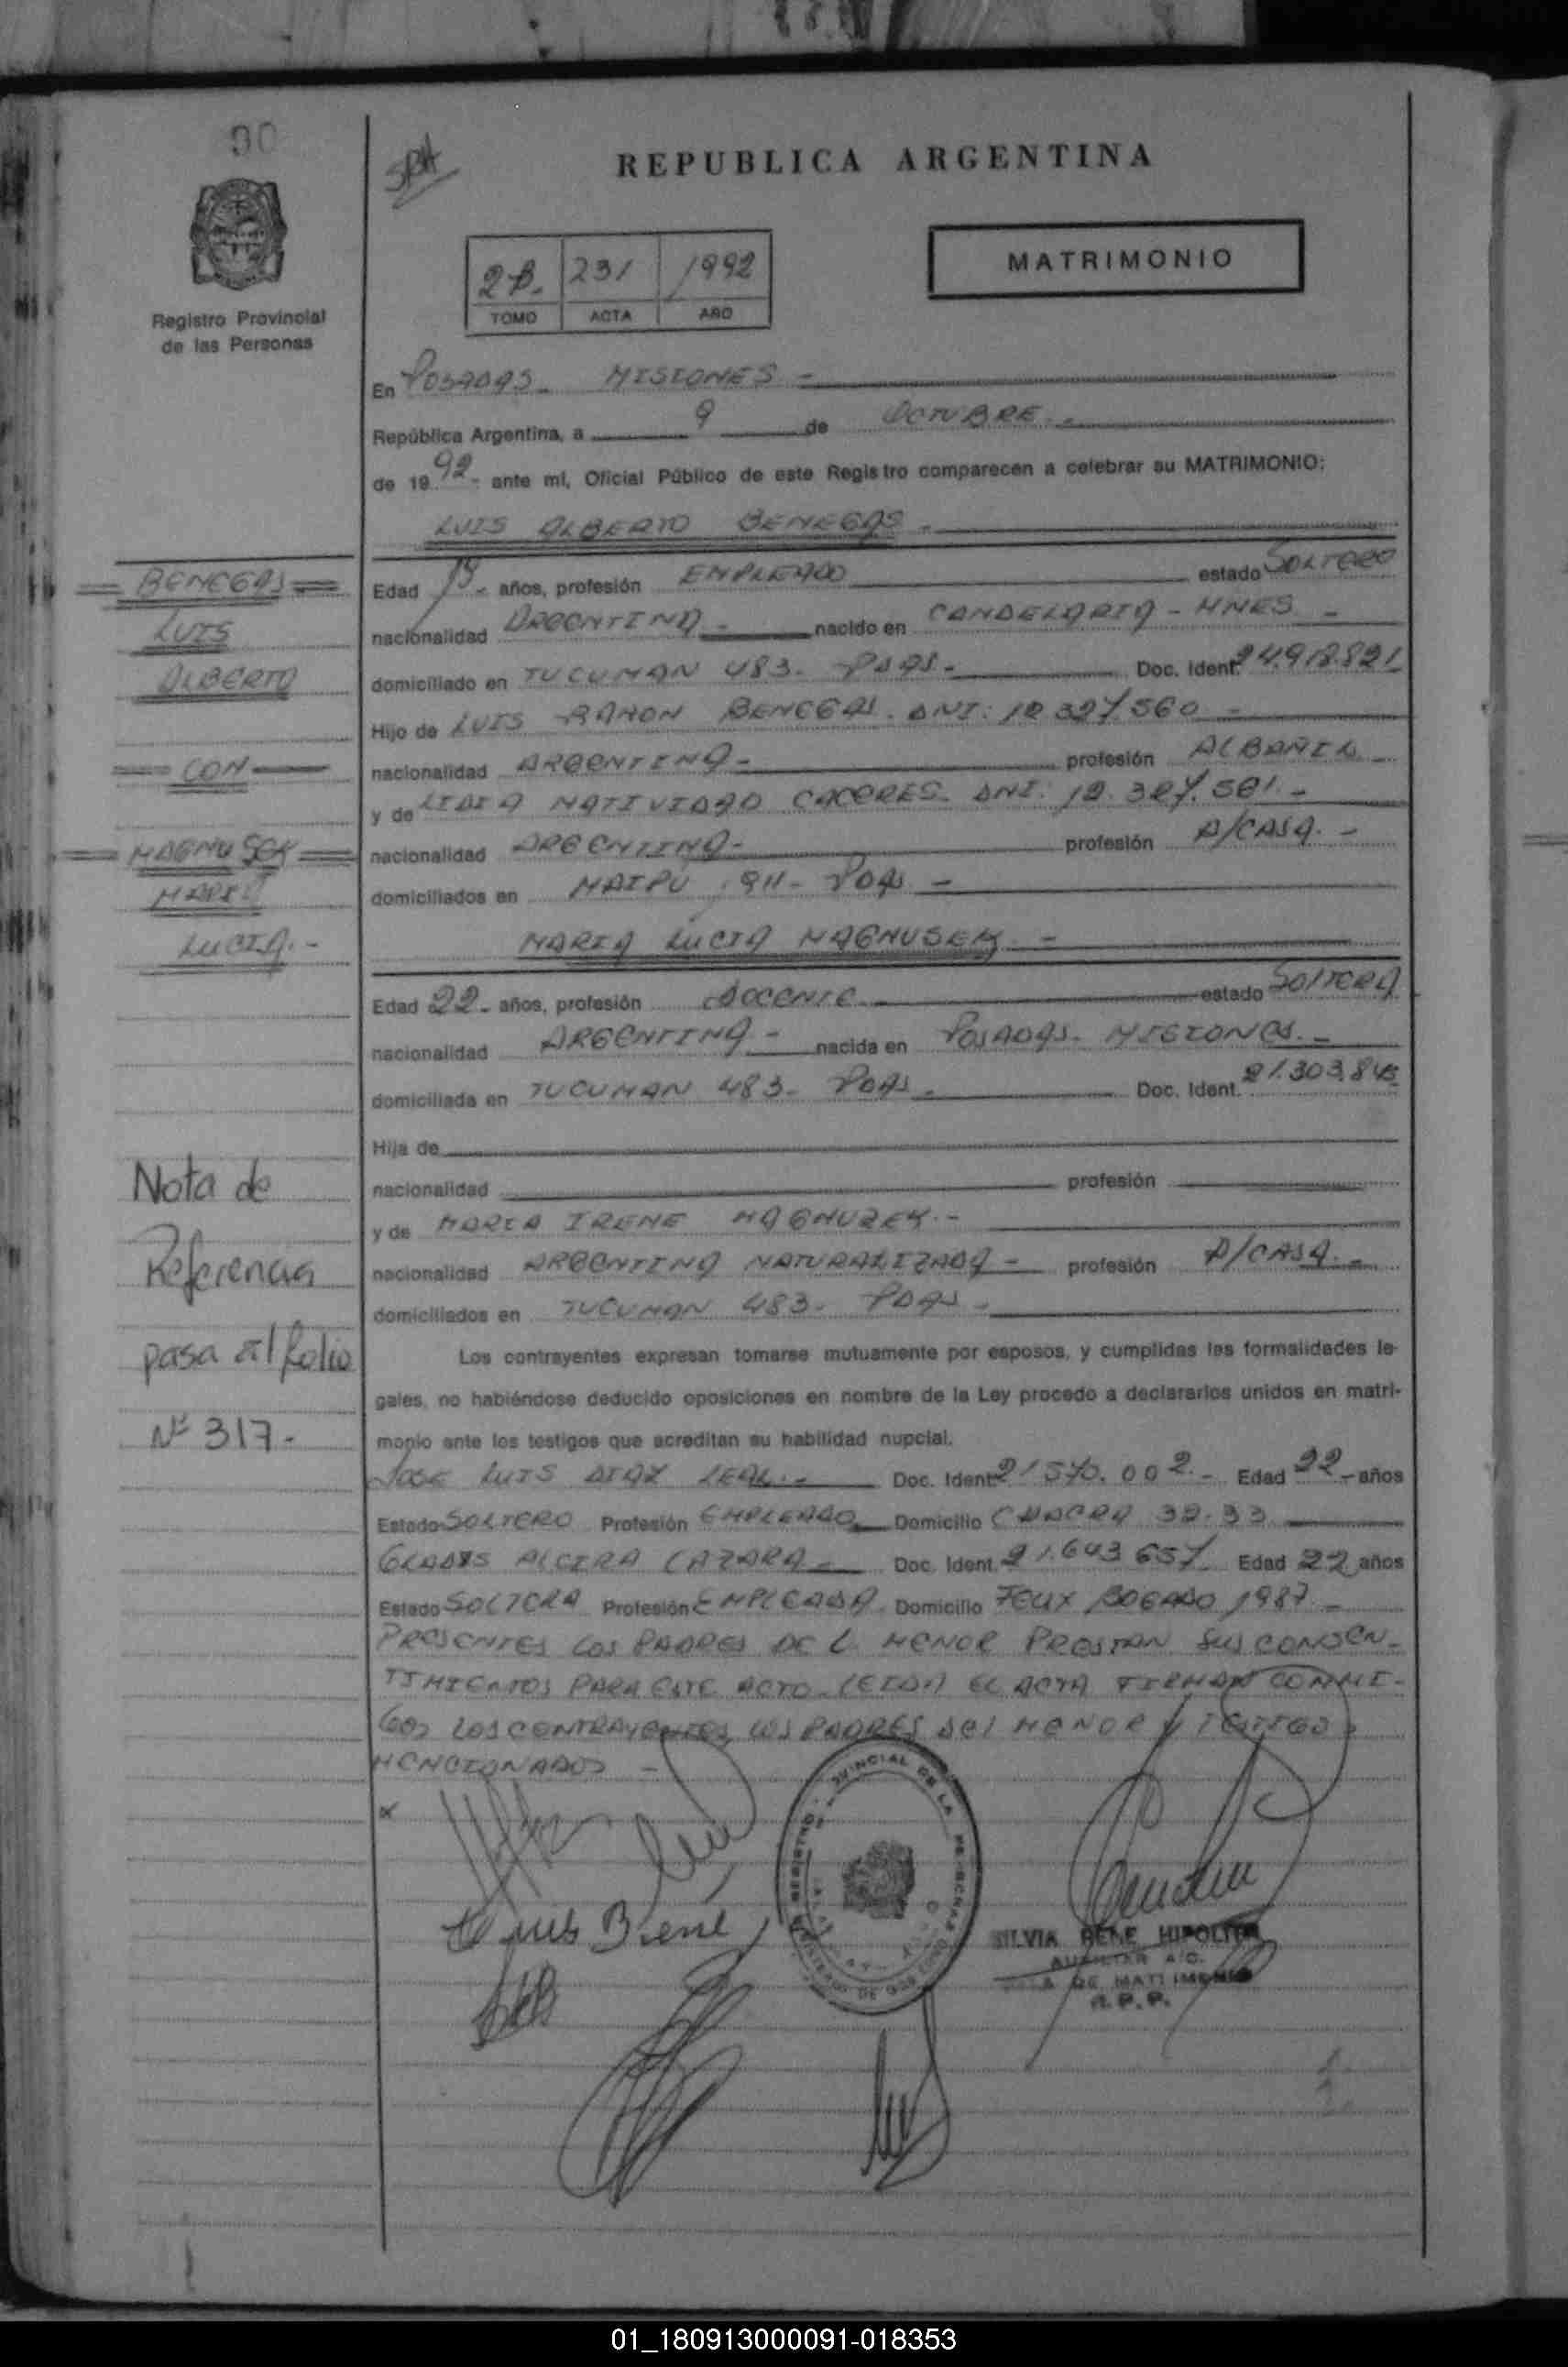 90
REPUBLICA ARGENTINA
Registro Provincial
de las Personas
2B. 231 1992
TOMO ACTA AÑO
MATRIMONIO
En POSADAS - MISIONES -
República Argentina, a 9 de OCTUBRE.-
de 1992- ante mí, Oficial Público de este Registro comparecen a celebrar su MATRIMONIO:
LUIS ALBERTO BENEGAS -
BENEGAS
LUIS
ALBERTO
CON
MAGNUSEK
MARIA
LUCIA.-
Nota de
Referencia
pasa al folio
Nº 317-
Edad años, profesión EMPLEADO estado SOLTERO
nacionalidad ARGENTINA - nacido en CANDELARIA - MNES -
domiciliado en TUCUMAN 483- PDAS- Doc. Ident. 24.918.821
Hijo de LUIS RAMON BENEGAS. DNI: 12.327.560 -
nacionalidad ARGENTINA - profesión ALBAÑIL -
y de LIDIA NATIVIDAD CACERES. DNI: 12.327.561.-
nacionalidad ARGENTINA- profesión A/CASA.-
domiciliados en MAIPU 911- PDAS -
MARIA LUCIA MAGNUSEK.-
Edad 22- años, profesión DOCENTE estado SOLTERA
nacionalidad ARGENTINA - nacida en POSADAS- MISIONES.-
domiciliada en TUCUMAN 483- PDAS. Doc. Ident. 21.303.843
Hija de
nacionalidad profesión
y de MARIA IRENE MAGNUZEK.-
nacionalidad ARGENTINA NATURALIZADA - profesión A/CASA.-
domiciliados en TUCUMAN 483- PDAS -
Los contrayentes expresan tomarse mutuamente por esposos, y cumplidas las formalidades le-
gales, no habiéndose deducido oposiciones en nombre de la Ley procedo a declararlos unidos en matri-
monio ante los testigos que acreditan su habilidad nupcial.
JOSE LUIS DIAZ LEAL.- Doc. Ident. 21.570.002.- Edad 22- años
Estado SOLTERO Profesión EMPLEADO Domicilio CHACRA 32.33
GLADYS ALCIRA CAZARA- Doc. Ident. 21.643.657 Edad 22 años
Estado SOLTERA Profesión EMPLEADA. Domicilio FELIX BOGADO 1987.-
PRESENTES LOS PADRES DE L MENOR PRESTAN SUS CONSEN-
TIMIENTOS PARA ESTE ACTO. LEIDA EL ACTA FIRMAN CONMI-
GO, LOS CONTRAYENTES, LOS PADRES DEL MENOR Y TESTIGOS
MENCIONADOS -
SILVIA RENE HIPOLITO
AUXILIAR A/C.
SALA DE MATRIMONIO
R.P.P.
01_180913000091-018353